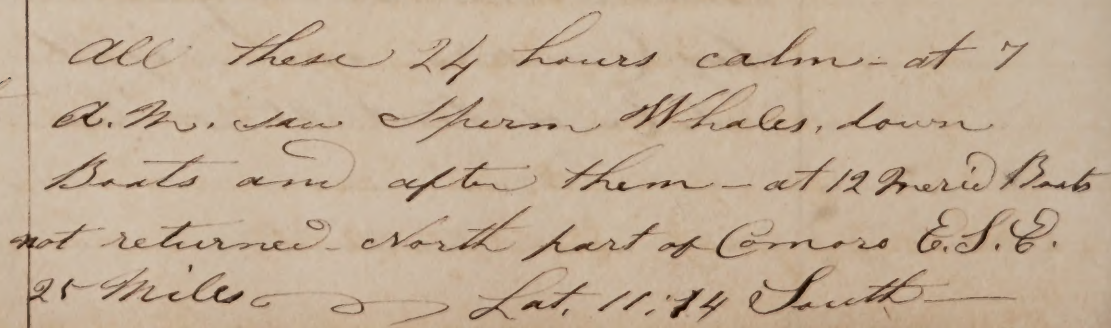 All these 24 hours calm - at 7
A.M. saw Sperm Whales, down
Boats and after them - at 12 Merid Boats
not returned - North part of Comoro E.S.E.
25 Miles Lat. 11:14 South